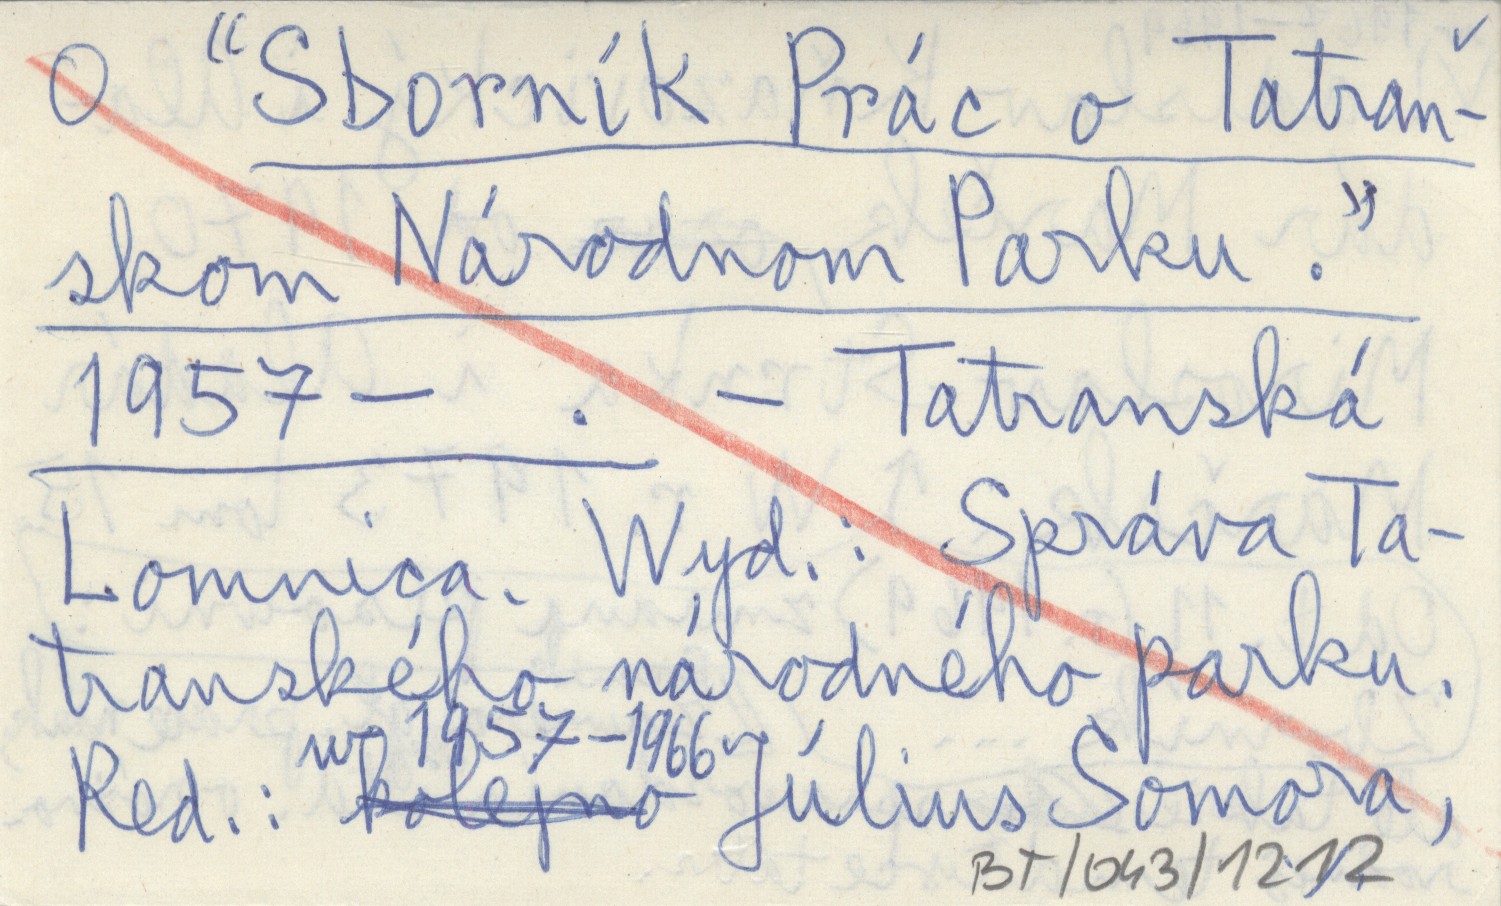 O “Sborník Prác o Tatran̆-
skom Národnom Parku.”
1957 – . – Tatranská
Lomnica. Wyd.: Správa Ta-
tranského národného parku.
w 1957–1966
Red.: kolejno Július Šomora,
BT/043/1212